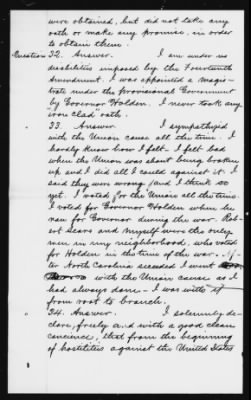 were obtained, but did not take any
oath or make any promise, in order
to obtain them.
Question 32. Answer. I am under no
disabilities imposed by the Fourteenth
Amendment. I was appointed a magis-
trate under the provisional Government
by Governor Holden. I never took any
iron clad oath.
33. Answer I sympathized
with the Union cause all the time. I
hardly know how I felt. I felt bad
when the Union was about being broken
up and I did all I could against it. I
said they were wrong and I think so
yet. I voted for the Union all the time.
I voted for Governor Holden when he
ran for Governor during the war. Rob-
ert Sears and myself were the only
men in my neighborhood, who voted
for Holden in the time of the war. Af-
ter North Carolina seceded I went
with the Union cause as I
had always done - I was with it
from root to branch.
34. Answer. I solemnly de-
clare, freely and with a good clean
concience, that from the beginning
of hostilities against the United States